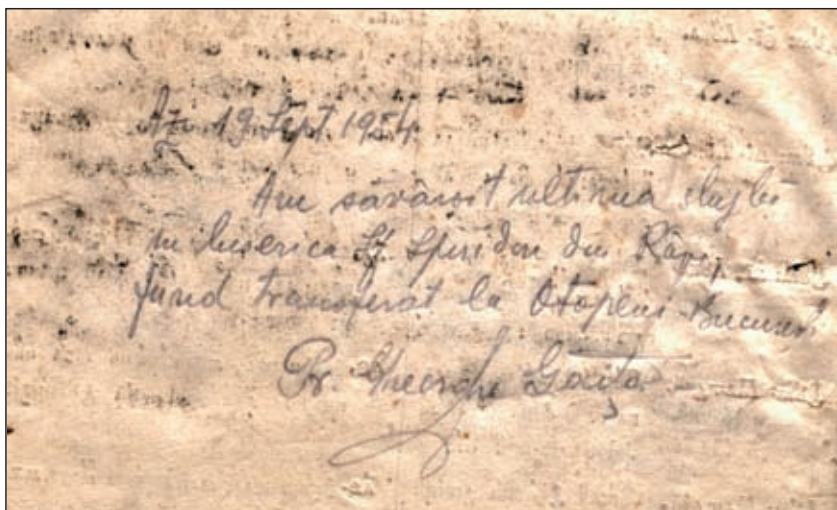 Azi 19 Sept 1954.
Am săvârșit ultima slujbă
în biserica Sf. Spiridon din
fiind transferat la Otopeni București
Pr. Gheorghe